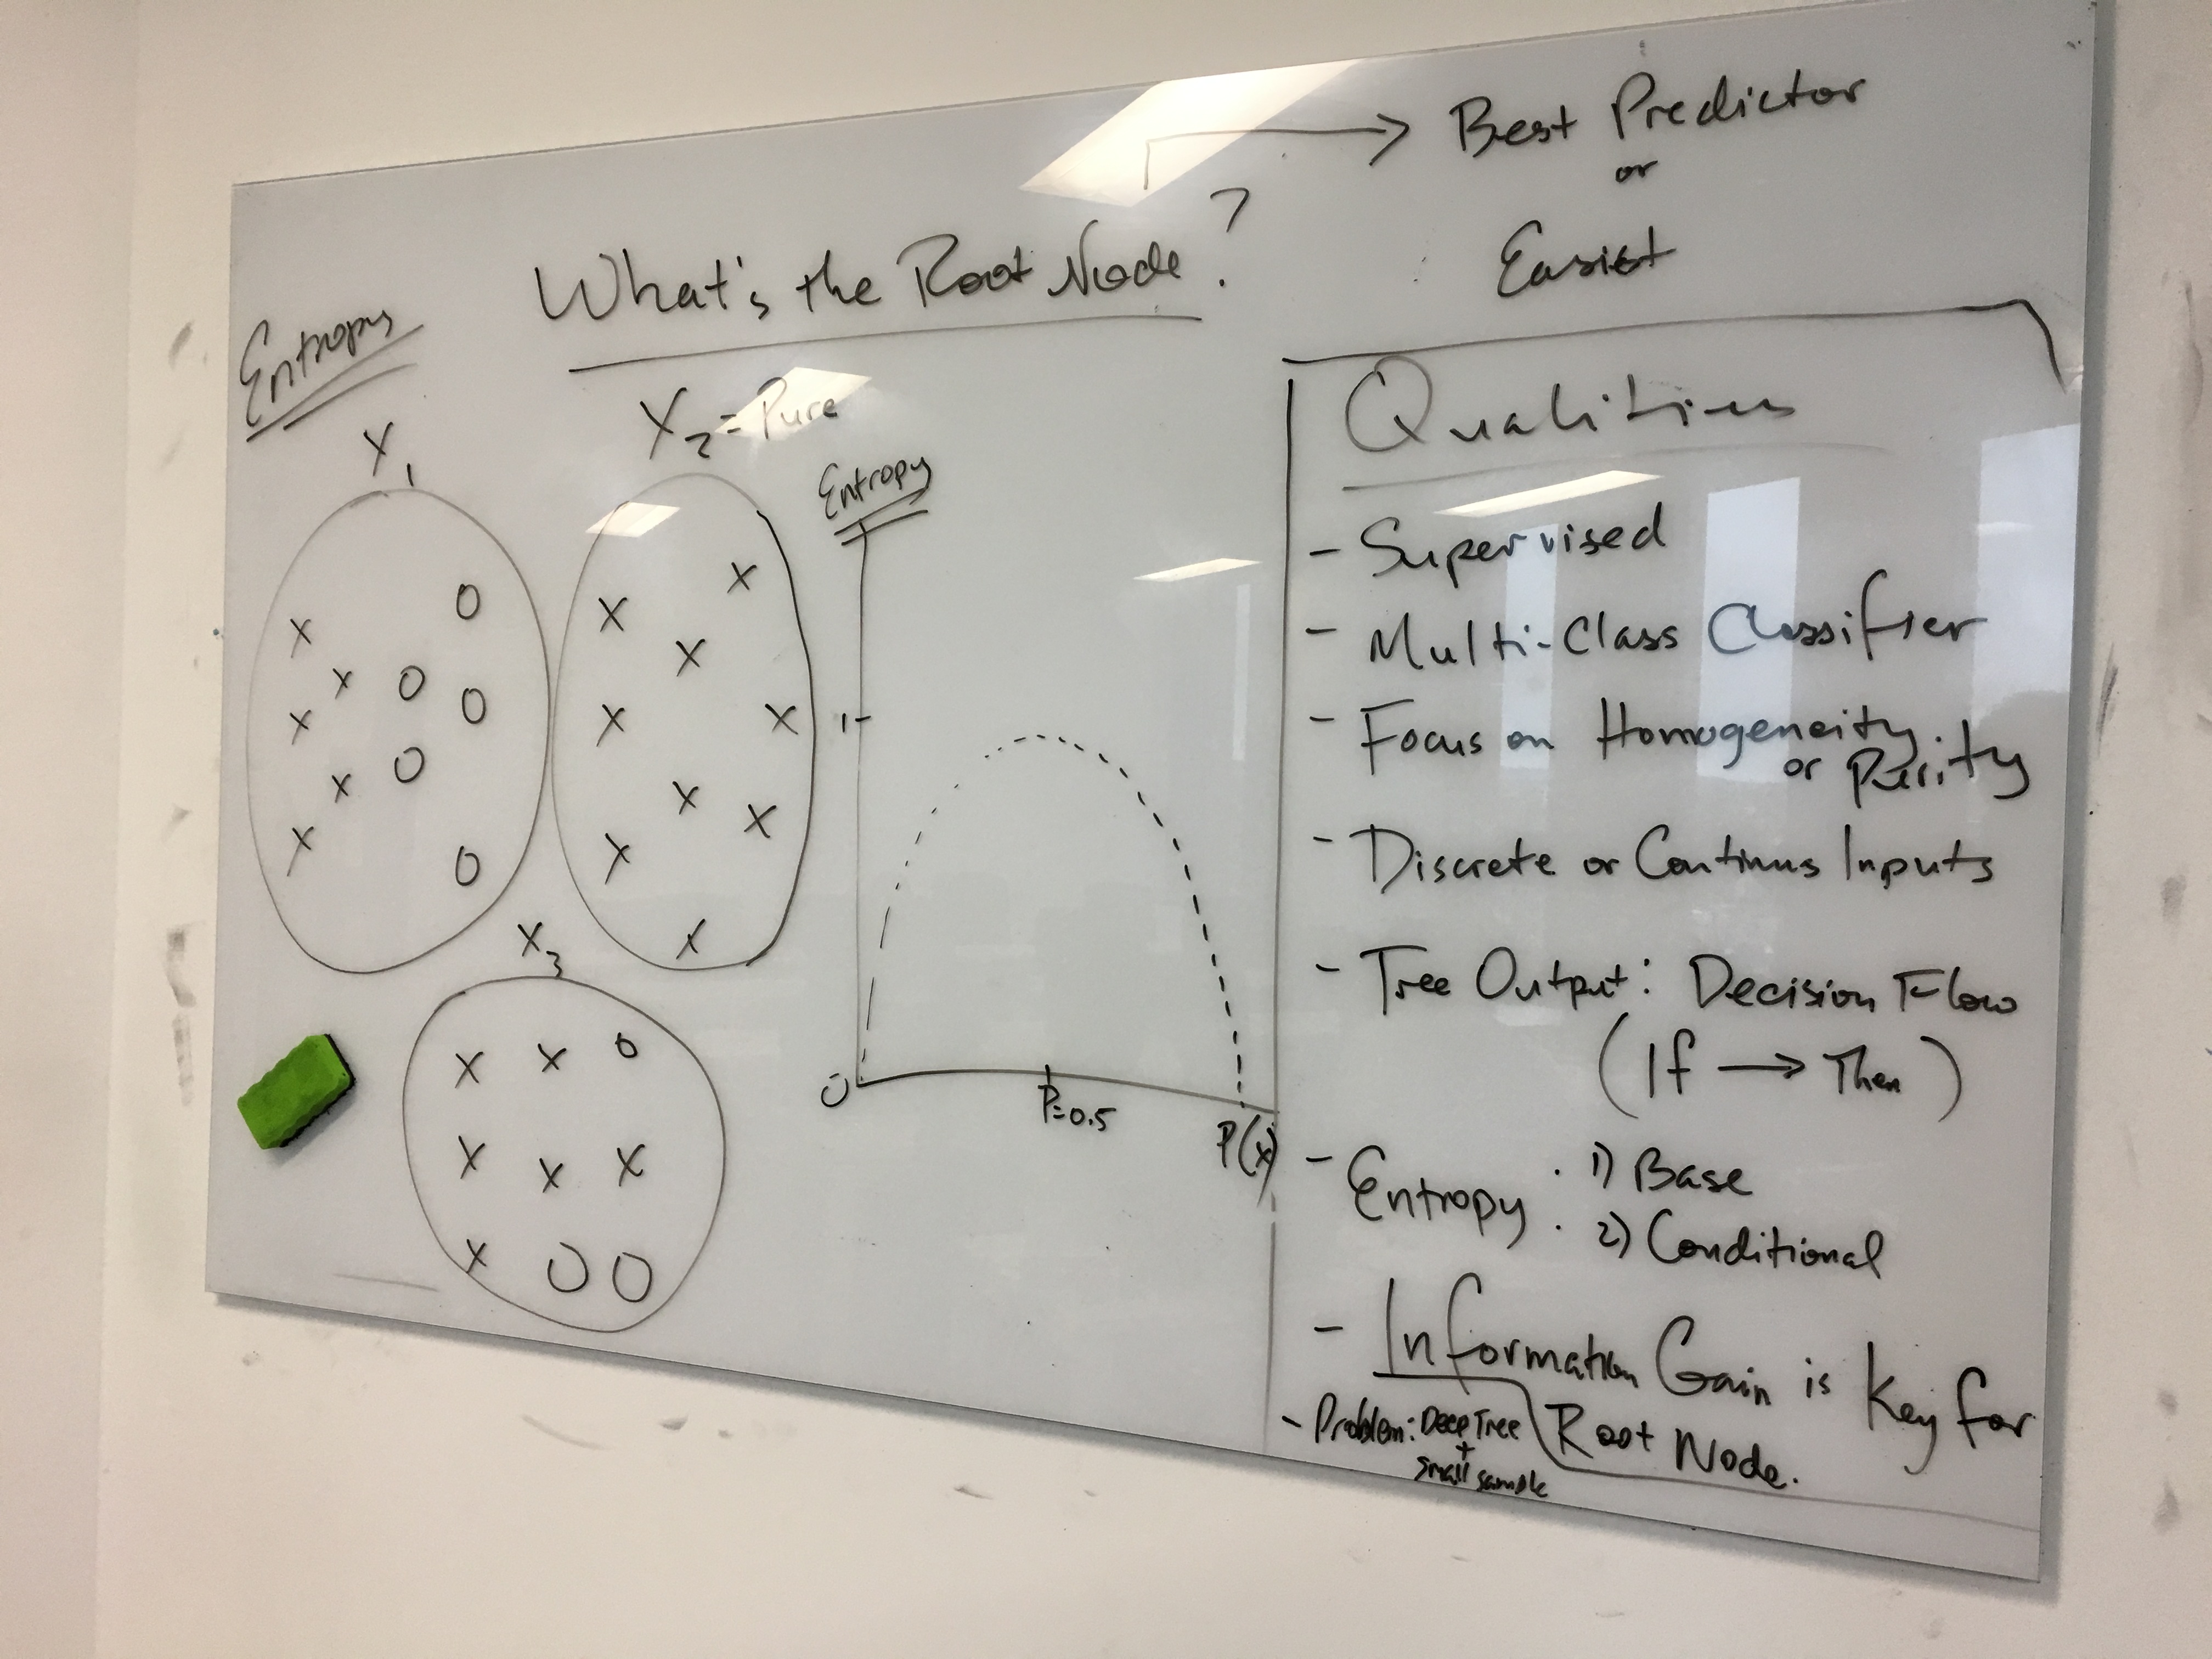 Best Predictor
or
Easiest
What's the Root Node?
Entropy
X1
X2 = Pure
X X X X X O O O O O
X X X X X X X X X
X3
X X O
X X X
X O O
Entropy
1
0
P=0.5
P(x)
Qualities
- Supervised
- Multi-Class Classifier
- Focus on Homogeneity
or Purity
- Discrete or Continus Inputs
- Tree Output: Decision Flow
(If → Then)
- Entropy: 1) Base
2) Conditional
- Information Gain is Key for
Root Node.
- Problem: Deep Tree
+
Small sample